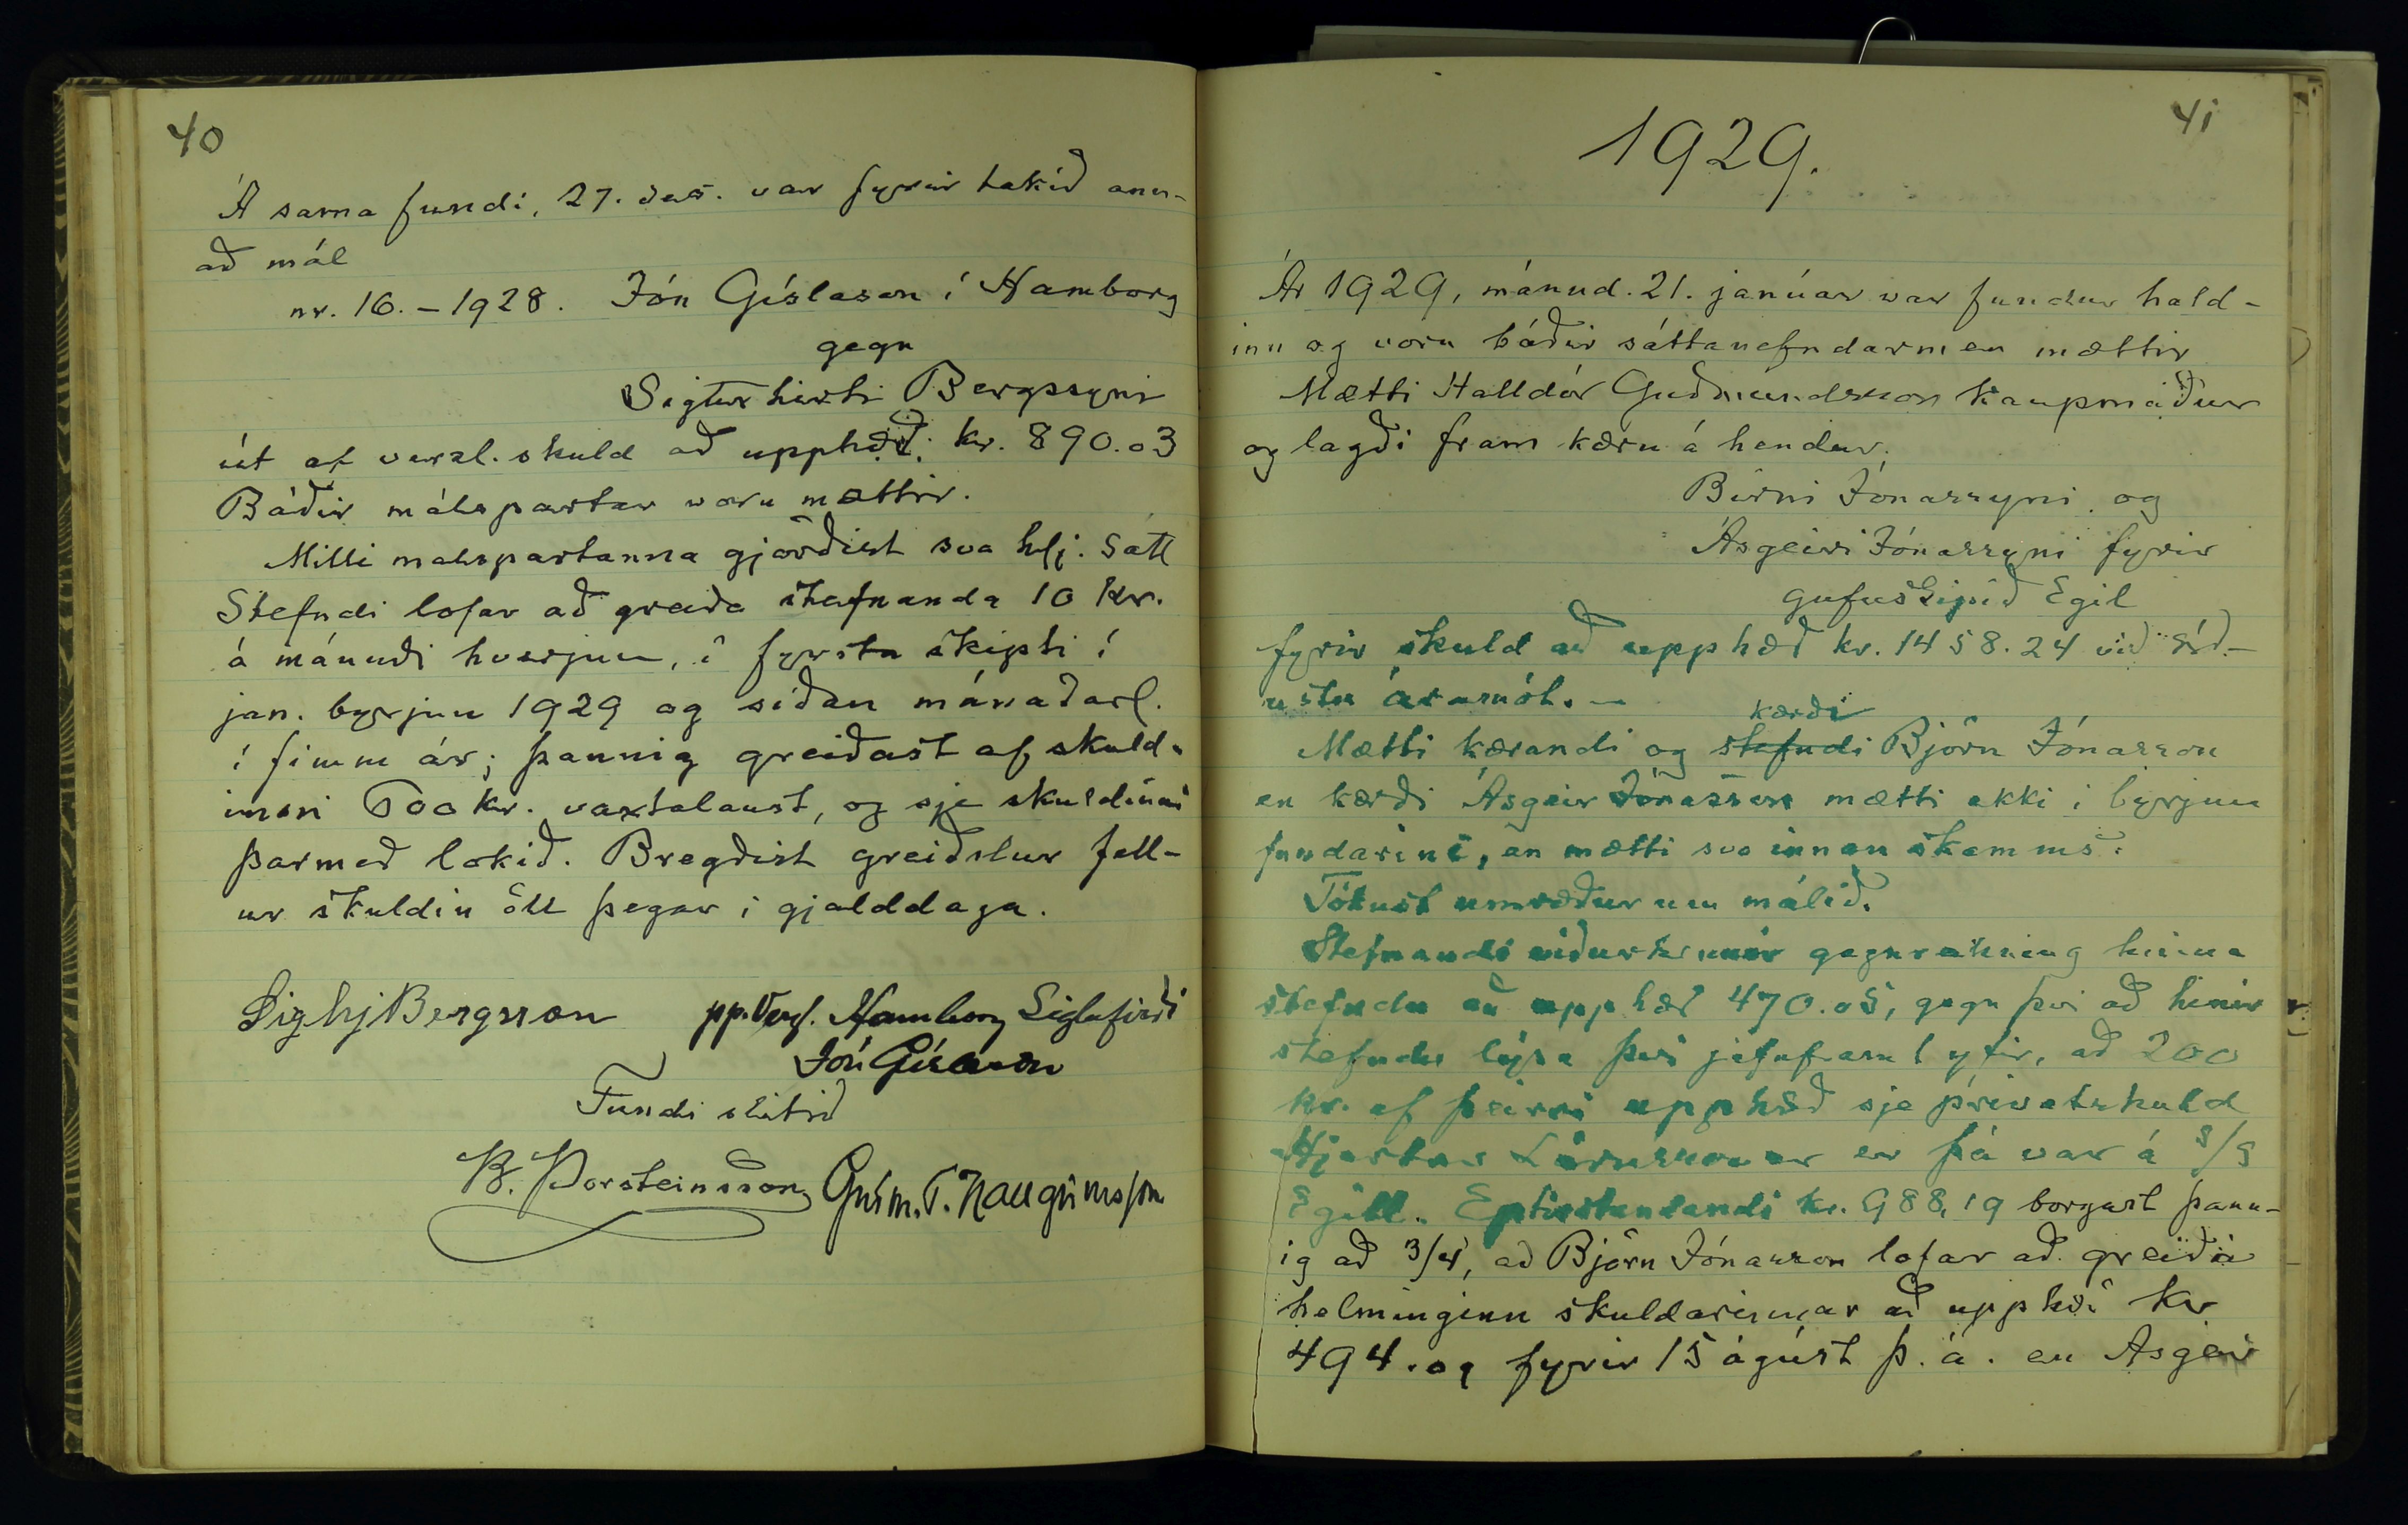 40
Á sama fundi, 27. des. var fyrir tekið ann-
að mál
nr. 16. - 1928. Jón Gíslason í Hamborg
gegn
Sigurhirti Bergssyni
út af verzl. skuld að upphæð: kr. 890.03
Báðir málspartar voru mættir.
Milli málspartanna gjörðist svo hlj. sátt
Stefndi lofar að greiða stefnanda 10 kr.
á mánuði hverjum, í fyrsta skipti í
jan. byrjun 1929 og síðan mánaðarl.
í fimm ár; þannig greiðast af skuld-
inni 600 kr. vaxtalaust, og sje skuldinni
þarmeð lokið. Bregðist greiðslur fell-
ur skuldin öll þegar í gjalddaga.
Sighj Bergsson pp. Verzl. Hamborg Siglufirði
Jón Gíslason
Fundi slitið
B. Þorsteinsson Grím. Hallgrímsson
41
1929.
Ár 1929, mánud. 21. janúar var fundur hald-
inn og voru báðir sáttanefndarmen mættir
Mætti Halldór Guðmundsson kaupmaður
og lagði fram kæru á hendur.
Birni Jónassyni og
Ásgeiri Jónassyni fyrir
gufuskipið Egil
fyrir skuld að upphæð kr. 1458.24 við síð-
ustu áramót. -
kærði
Mætti kærandi og stefndi Björn Jónasson
en kærði Ásgeir Jónasson mætti ekki í byrjun
fundarins, en mætti svo innan skamms.
Tókust umræður um málið.
Stefnandi viðurkennir gagnreikning hinna
stefndu að upphæð 470.05, gegn því að hinir
stefndu lýsa því jafnframt yfir, að 200
kr. af þeirri upphæð sje privatskuld
Hjartar Lárussonar er þá var á s/s
Egill. Eptirstandandi kr. 988,19 borgast þann-
ig að 3/4, að Björn Jónasson lofar að greiða
helminginn skuldarinnar að upphæð kr
494.09 fyrir 15 ágúst þ. á. en Asgeir